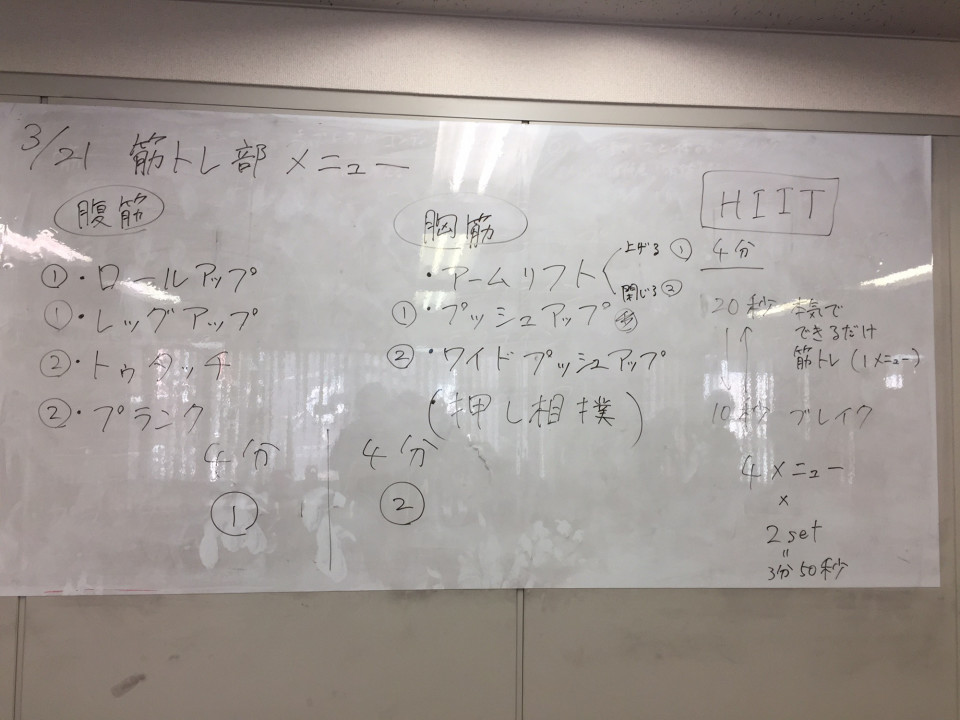 3/21 筋トレ部 メニュー
腹筋
①・ロールアップ
①・レッグアップ
②・トゥタッチ
②・プランク
胸筋
・アームリフト
上げる ①
閉じる ②
①・プッシュアップ
②・ワイドプッシュアップ
(押し相撲)
4分
①
4分
②
HIIT
4分
20秒 本気で
できるだけ
筋トレ(1メニュー)
10秒 ブレイク
4メニュー
×
2set
=
3分50秒